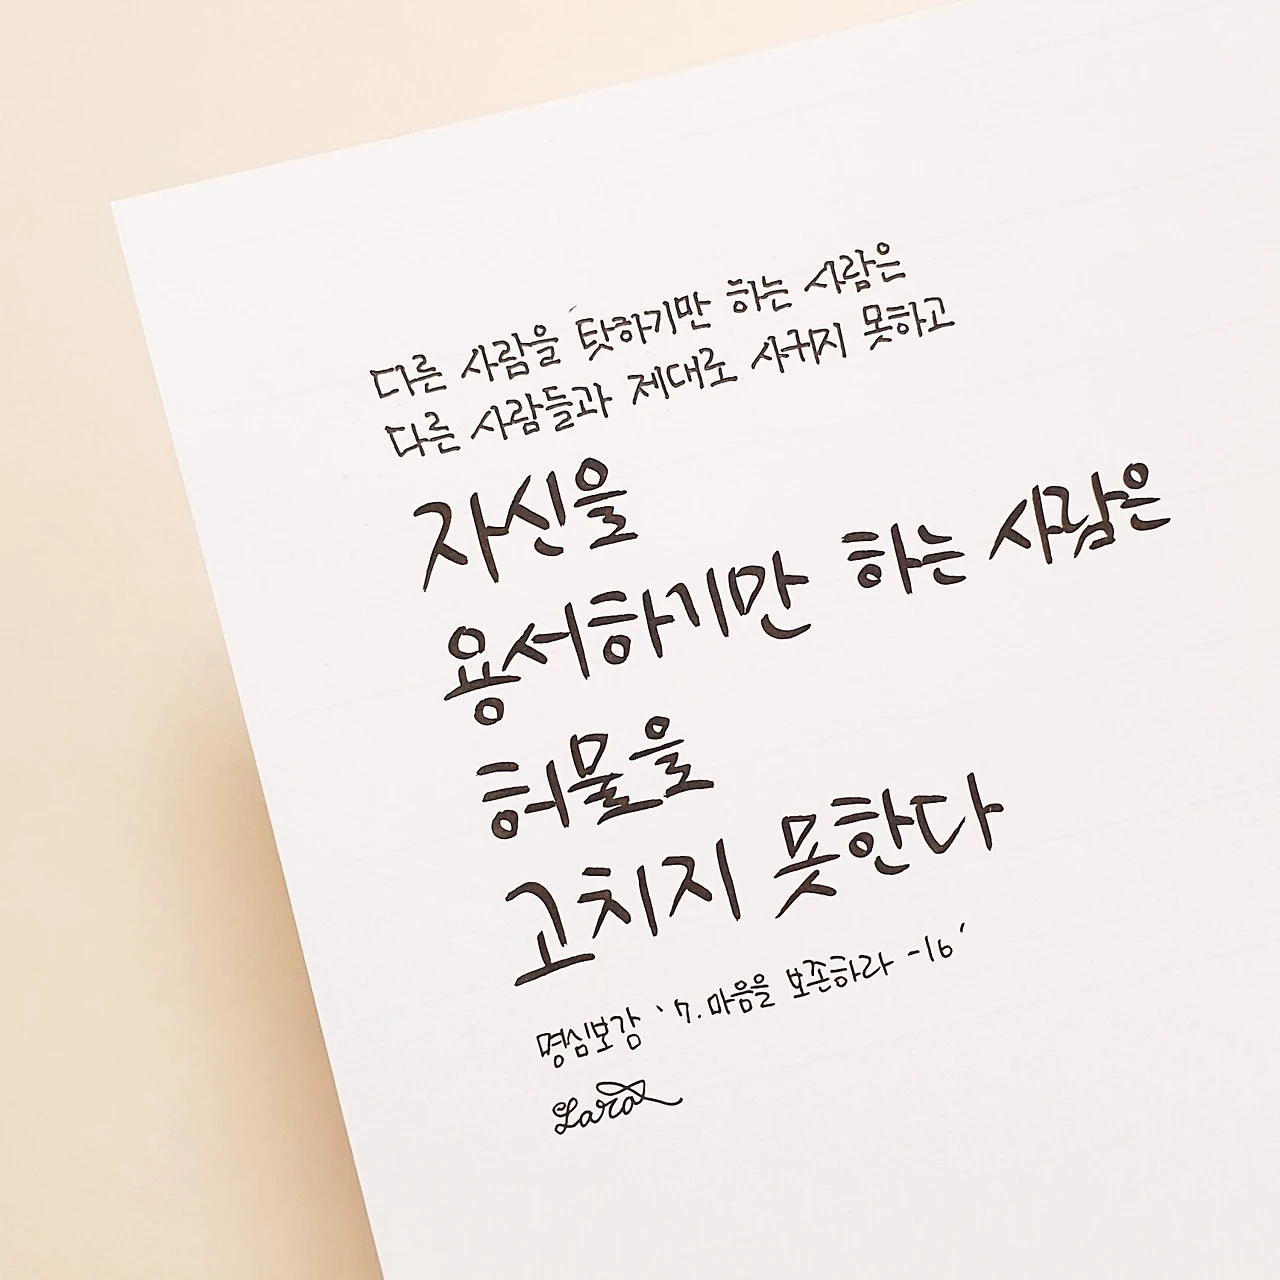 다른 사람을 탓하기만 하는 사람은
다른 사람들과 제대로 사귀지 못하고
자신을
용서하기만 하는 사람은
허물을
고치지 못한다
명심보감 '7. 마음을 보존하라 -16'
Lara